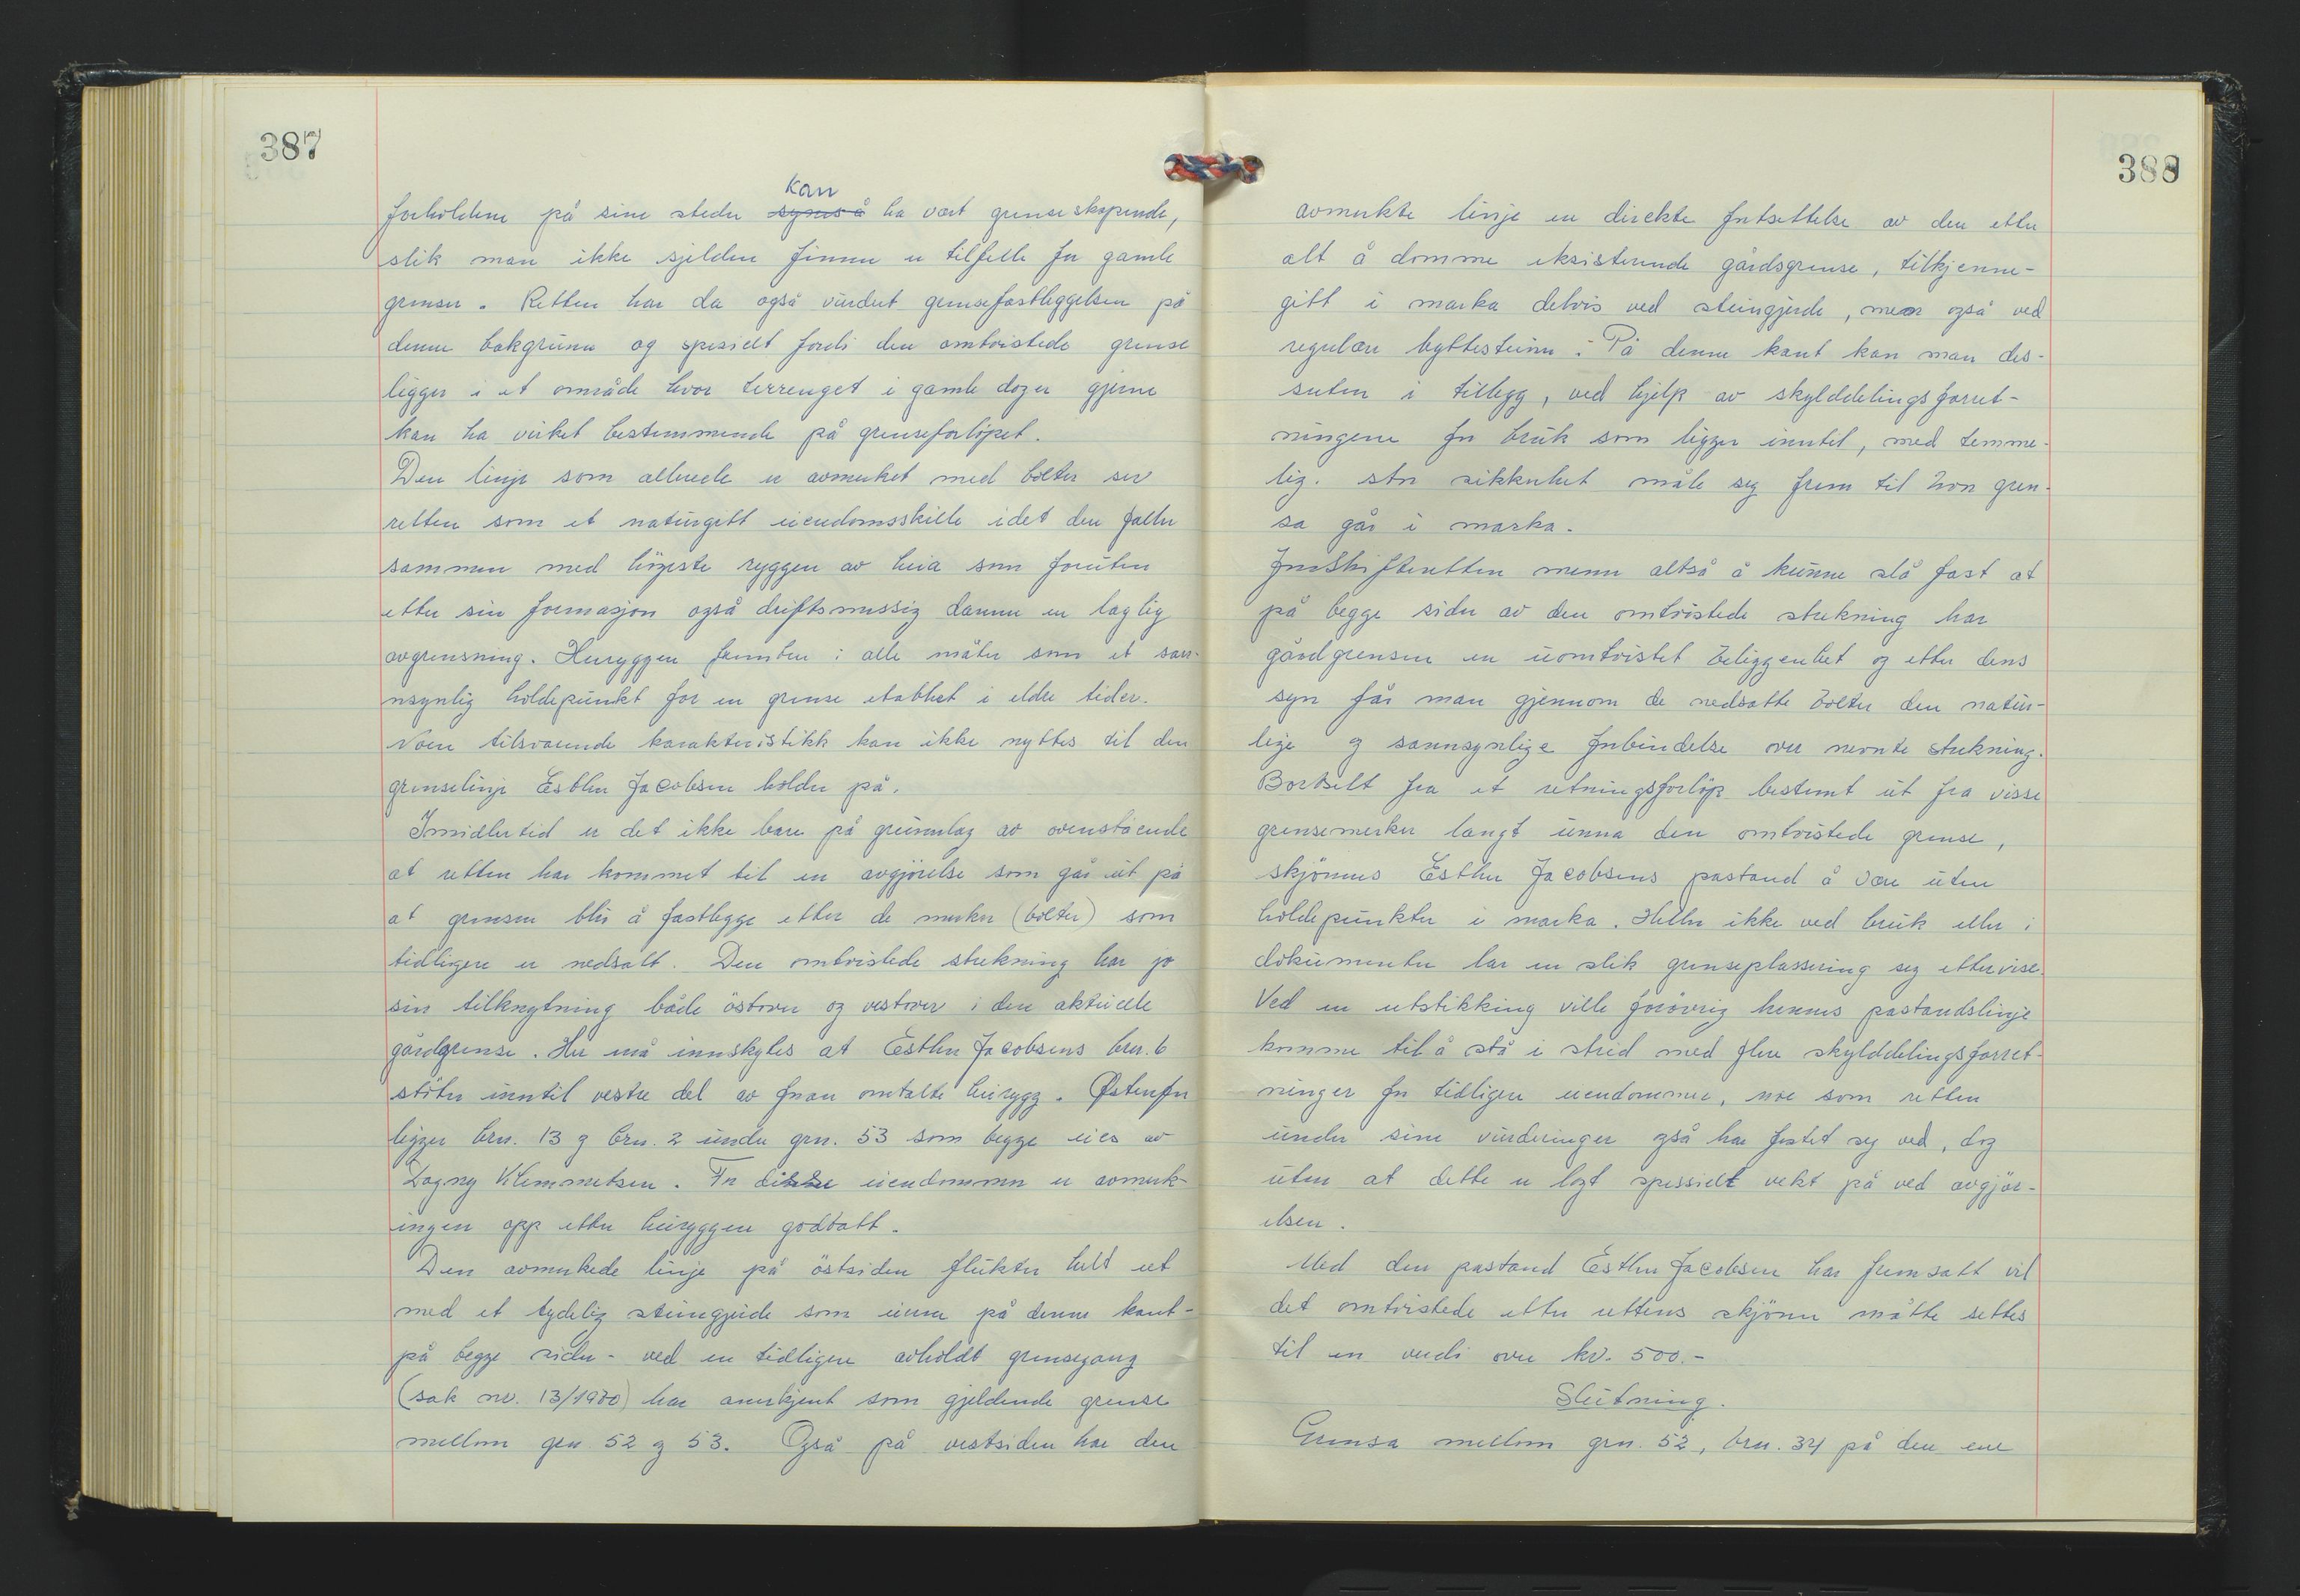 387
kan
forholdene på sine steder ~~synes å~~ ha vært grenseskapende,
slik man ikke sjelden finner er tilfelle for gamle
grenser. Retten har da også vurdert grensefastleggelsen på
denne bakgrunn og spesielt fordi den omtvistede grense
ligger i et område hvor terrenget i gamle dager gjerne
kan ha virket bestemmende på grenseforløpet.
Den linje som allerede er avmerket med bolter ser
retten som et naturgitt eiendomsskille idet den faller
sammen med höyeste ryggen av heia som foruten
etter sin formasjon også driftsmessig danner en laglig
avgrensning. Heiryggen fremtrer i alle måter som et sann-
nsynlig holdepunkt for en grense etablert i eldre tider.
Noen tilsvarende karakteristikk kan ikke nyttes til den
grenselinje Esther Jacobsen holder på.
Imidlertid er det ikke bare på grunnlag av ovenstående
at retten har kommet til en avgjörelse som går ut på
at grensen blir å fastlegge etter de merker (bolter) som
tidligere er nedsatt. Den omtvistede strekning har jo
sin tilknytning både östover og vestover i den aktuelle
gårdgrense. Her må innskytes at Esther Jacobsens brn. 6
stöter inntil vestre del av foran omtalte heirygg. Østenfor
ligger brn. 13 og brn. 2 under grn. 53 som begge eies av
Dagny Klemmetsen. For disse eiendommer er avmerk-
ingen opp etter heiryggen godtatt.
Den avmerkede linje på östsiden flukter helt ut
med et tydelig steingjerde som eierne på denne kant -
på begge sider - ved en tidligere avholdt grensegang
(sak nr. 13/1970) har anerkjent som gjeldende grense
mellom grn. 52 og 53. Også på vestsiden har den
388
avmerkte linje en direkte fortsettelse av den etter
alt å dømme eksisterende gårdsgrense, tilkjenne-
gitt i marka delvis ved steingjerde, men også ved
regulære byttesteiner. På denne kant kan man des-
suten i tillegg, ved hjelp av skylddelingsforret-
ningene for bruk som ligger inntil, med temme-
lig stor sikkerhet måle seg frem til hvor gren-
sa går i marka.
Jordskifteretten mener altså å kunne slå fast at
på begge sider av den omtvistede strekning har
gårdgrensen en uomtvistet beliggenhet og etter dens
syn får man gjennom de nedsatte bolter den natur-
lige og sannsynlige forbindelse over nevnte strekning.
Bortselt fra et retningsforløp bestemt ut fra visse
grensemerker langt unna den omtvistede grense,
skjönnes Esther Jacobsens påstand å være uten
holdepunkter i marka. Heller ikke ved bruk eller i
dokumenter lar en slik grenseplassering seg ettervise.
Ved en utstikking ville forövrig hennes påstandslinje
komme til å stå i strid med flere skylddelingsforret-
ninger for tidligere eiendommer, noe som retten
under sine vurderinger også har festet seg ved, dog
uten at dette er lagt spesielt vekt på ved avgjör-
elsen.
Med den påstand Esther Jacobsen har fremsatt vil
det omtvistede etter rettens skjönn måtte settes
til en verdi over kr. 500.-
Slutning.
Grensa mellom grn. 52, brn. 34 på den ene